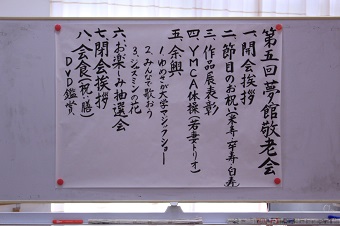 第五回夢館敬老会
一、開会挨拶
二、節目のお祝い(米寿・卒寿・白寿)
三、作品展表彰
四、YMCA体操(若妻トリオ)
五、余興
1、ゆのさか大学マジックショー
2、みんなで歌おう
3、ジャスミンの花
六、お楽しみ抽選会
七、閉会挨拶
八、会食(祝い膳)
DVD鑑賞